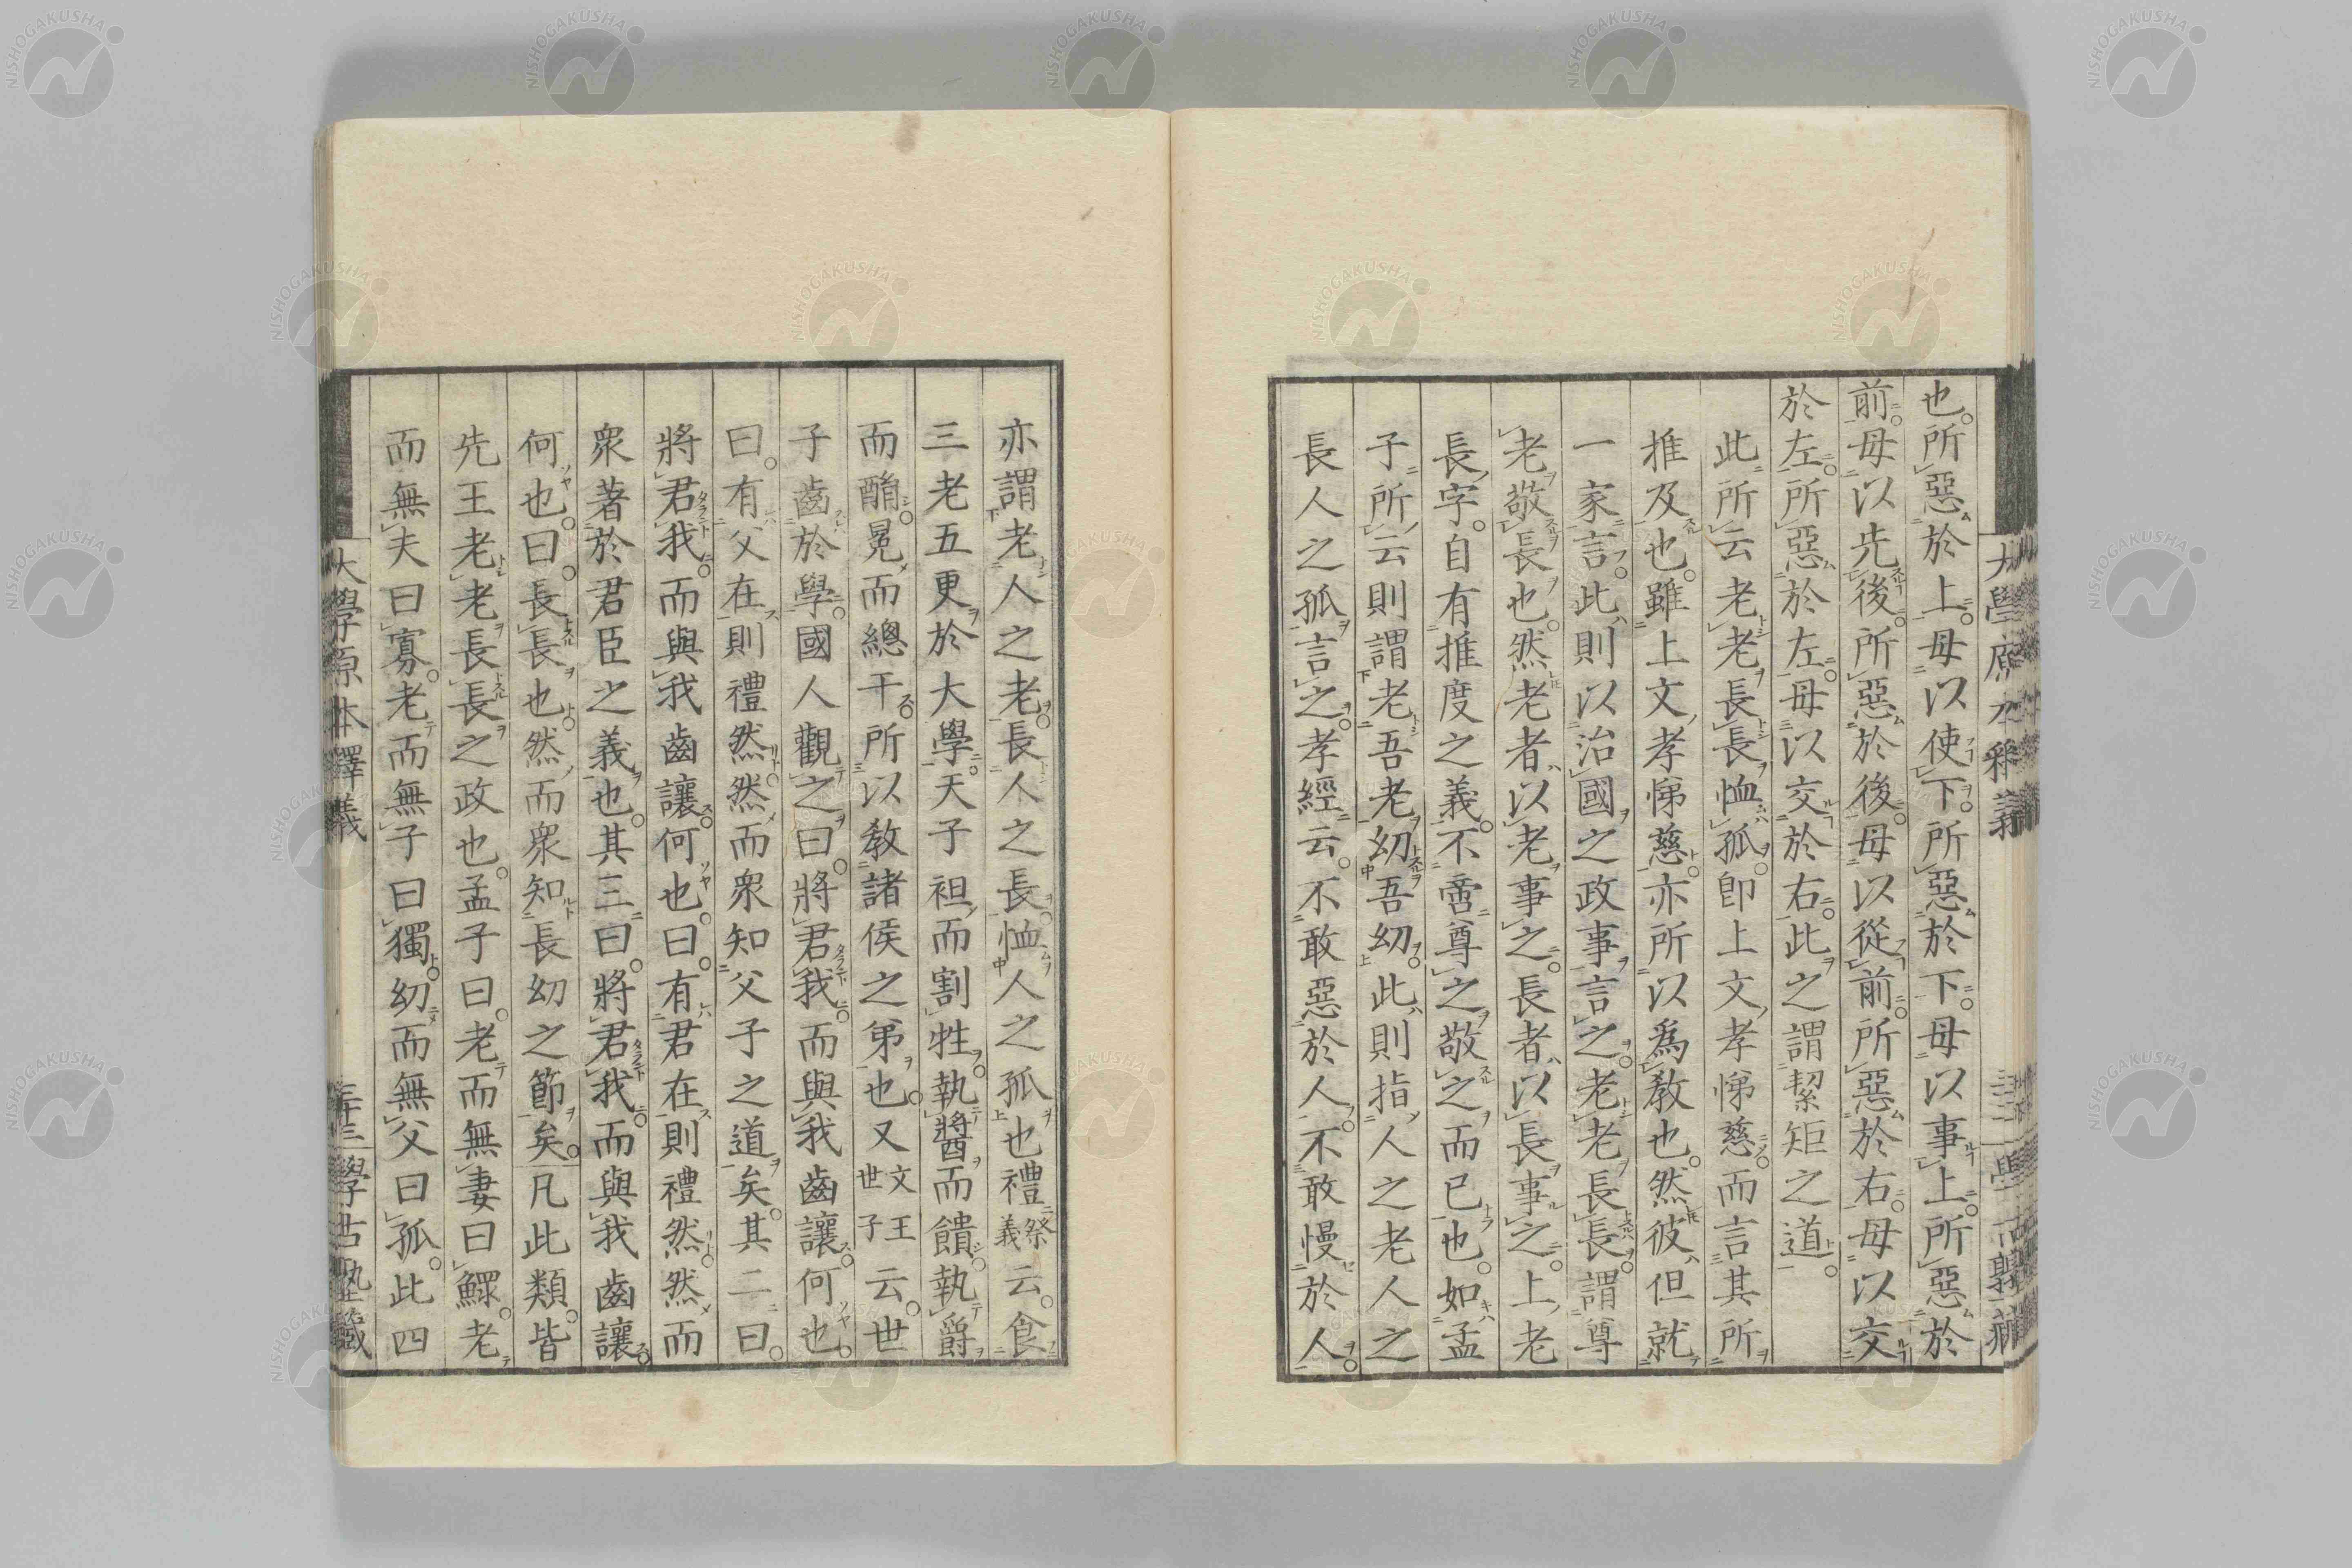 也。所惡於上。毋以使下。所惡於下。毋以事上。所惡於
前。毋以先後。所惡於後。毋以從前。所惡於右。毋以交
於左。所惡於左。毋以交於右。此之謂絜矩之道。
此所云老老長長恤孤。卽上文孝悌慈。而言其所
推及也。雖上文孝悌慈。亦所以爲敎也。然彼但就
一家言。此則以治國之政事言之。老老長長。謂尊
老敬長也。然老者以老事之。長者以長事之。上老
長字。自有推度之義。不啻尊之敬之而已也。如孟
子所云則謂老吾老幼吾幼。此則指人之老人之
長人之孤言之。孝經云。不敢惡於人。不敢慢於人。
亦謂老人之老。長人之長。恤人之孤也禮祭義云。食
三老五更於大學。天子袒而割牲。執醬而饋。執爵
而酳。冕而總干。所以敎諸侯之弟也。又文王世子云。世
子齒於學。國人觀之曰。將君我。而與我齒讓。何也。
曰。有父在則禮然。然而衆知父子之道矣。其二曰。
將君我。而與我齒讓。何也。曰。有君在則禮然。然而
衆著於君臣之義也。其三曰。將君我。而與我齒讓。
何也。曰。長長也。然而衆知長幼之節矣。凡此類。皆
先王老老長長之政也。孟子曰。老而無妻曰鰥。老
而無夫曰寡。老而無子曰獨。幼而無父曰孤。此四
大學原本釋義
三十三
學古塾籤
NISHOGAKUSHA